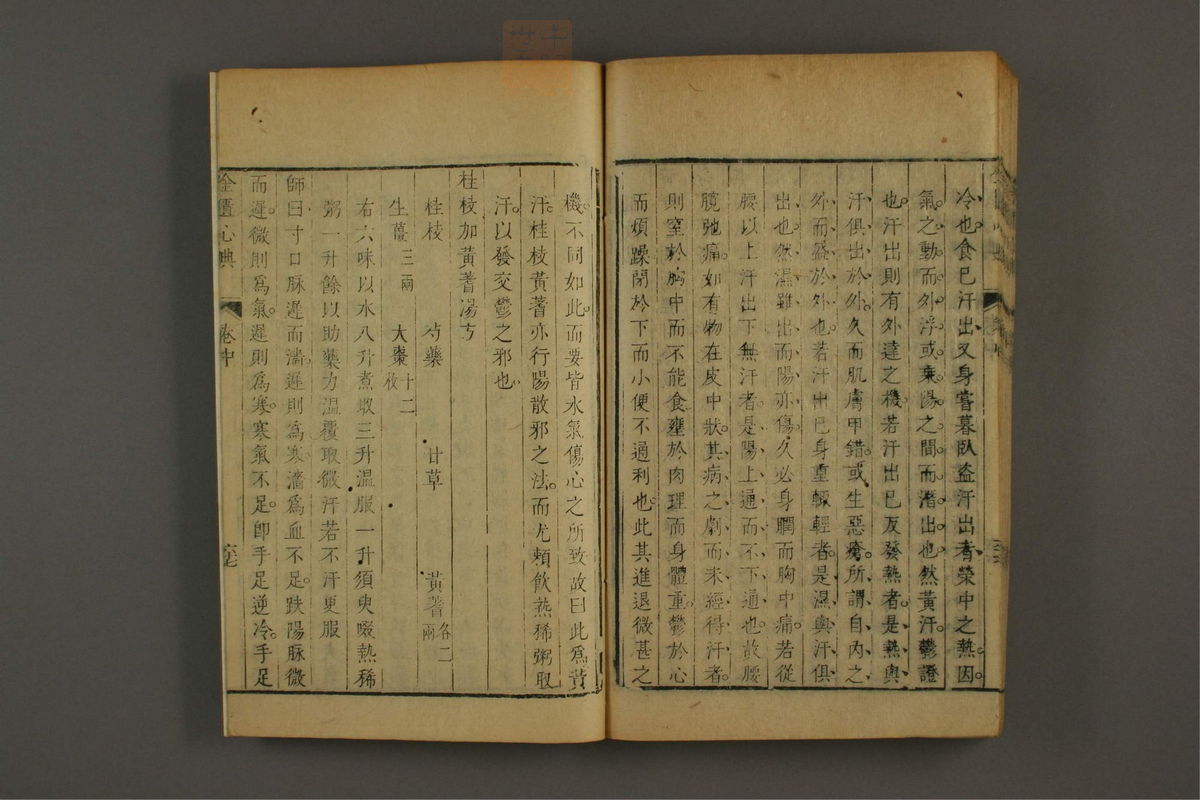 冷也。食已汗出又身嘗暮臥盜汗出者榮中之熱因
氣之動而外浮或乘陽之間而潛出也然黃汗鬱證
也汗出則有外達之機若汗出已反發熱者是熱與
汗俱出於外久而肌膚甲錯或生惡瘡所謂自內之
外而盛於外也若汗出已身重輒輕者是濕與汗俱
出也然濕雖出而陽亦傷久必身瞤而胸中痛若從
腰以上汗出下無汗者是陽上通而不下通也故腰
髖弛痛如有物在皮中狀其病之劇而未經得汗者
則窒於胸中而不能食壅於肉理而身體重鬱於心
而煩躁閉於下而小便不通利也此其進退微甚之
機不同如此而要皆水氣傷心之所致故曰此為黃
汗桂枝黃蓍亦行陽散邪之法而尤賴飲熱稀粥取
汗以發交鬱之邪也
桂枝加黃蓍湯方
桂枝 芍藥 甘草 黃蓍各二兩
生薑三兩 大棗十二枚
右六味以水八升煮取三升溫服一升須臾啜熱稀
粥一升餘以助藥力溫覆取微汗若不汗更服
師曰寸口脉遲而濇遲則為寒濇為血不足趺陽脉微
而遲微則為氣遲則為寒寒氣不足即手足逆冷手足
金匱心典 卷中